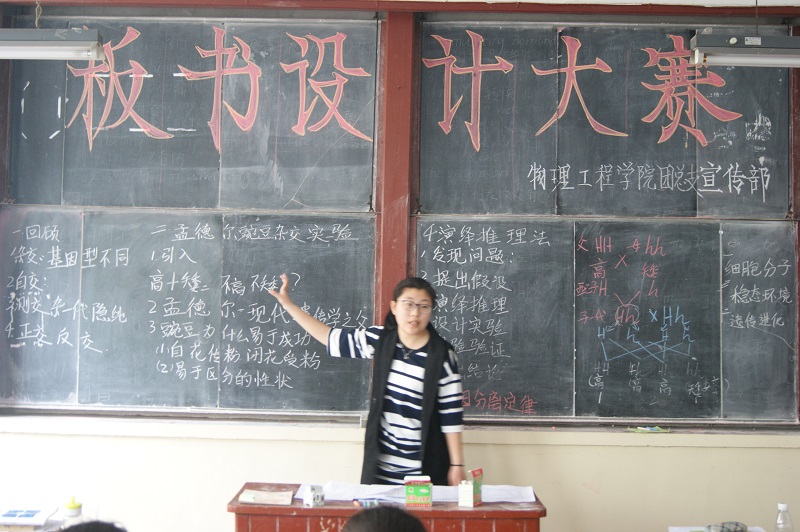 板书设计大赛
物理工程学院团总支宣传部
一回顾
杂交:基因型不同
2自交:
测交:杂一代隐纯
4.正交 反交
二 孟德尔豌豆杂交实验
1.引入
高+矮= 不高不矮?
2 孟德尔-现代遗传学之父
3 豌豆为什么易于成功
(1)自花传粉 闭花受粉
(2)易于区分的性状
4 演绎推理法
1.发现问题:
提出假设
演绎推理
设计实验
验证
结论
分离定律
父 HH 母 hh
高 × 矮
配子 H h
子一代 Hh × Hh
H h H h
高 高 高 矮
细胞分子
稳态环境
遗传进化